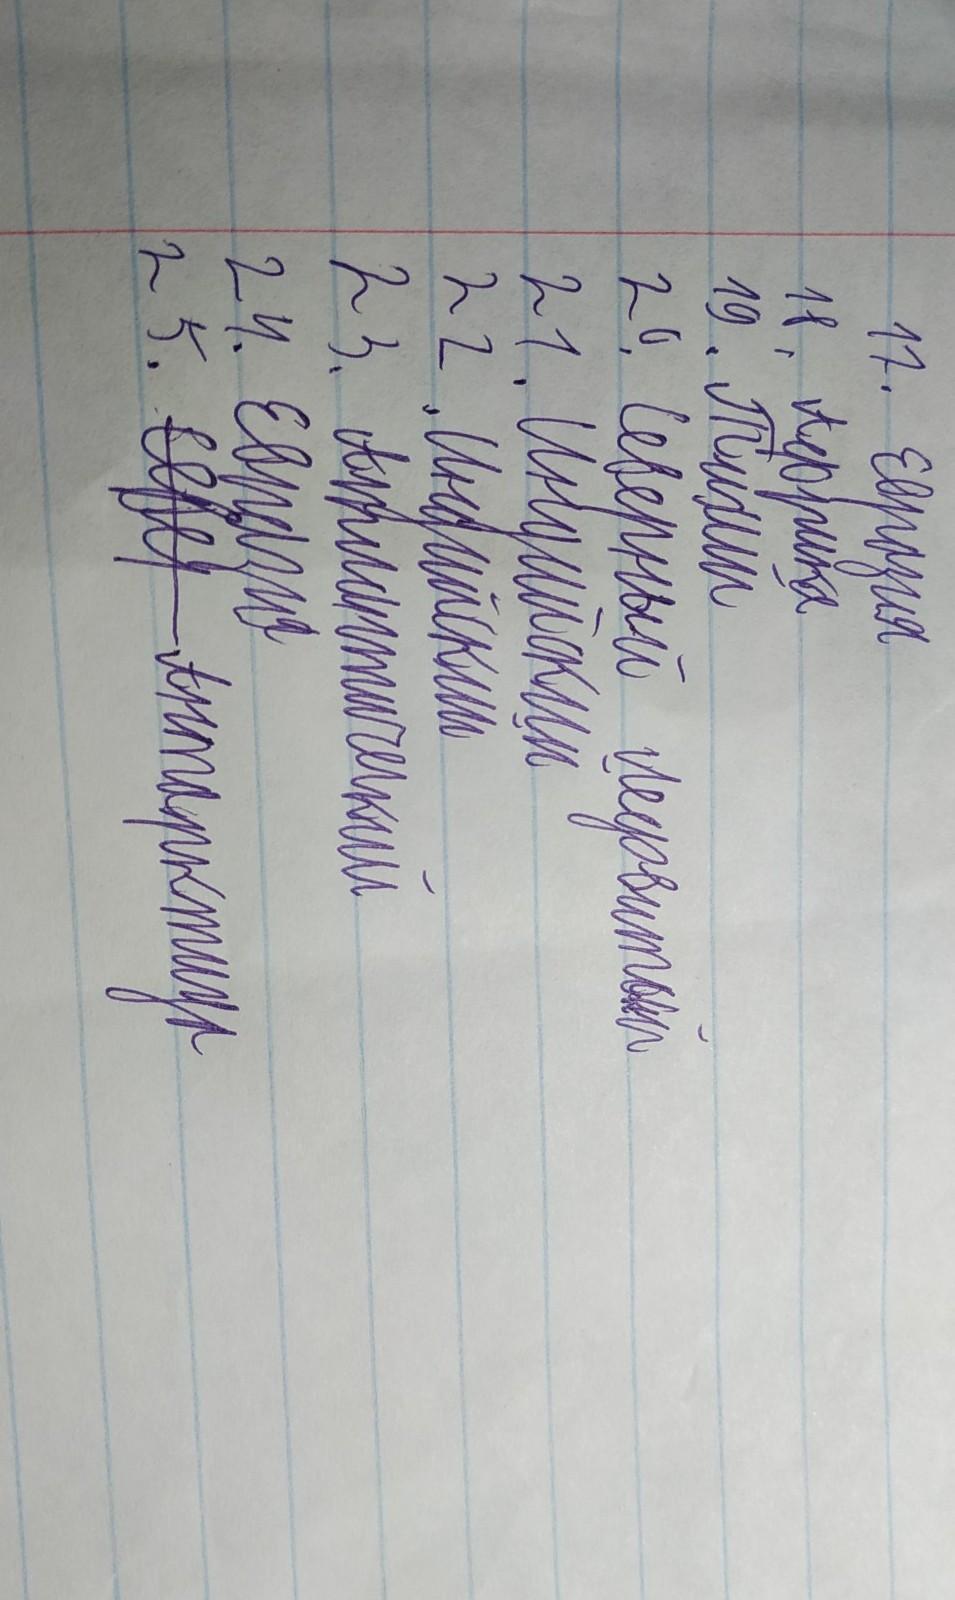 17. Евразия
18. Африка
19. Тихий
20. Северный Ледовитый
21. Индийский
22. Индийский
23. Атлантический
24. Евразия
25. Антарктида